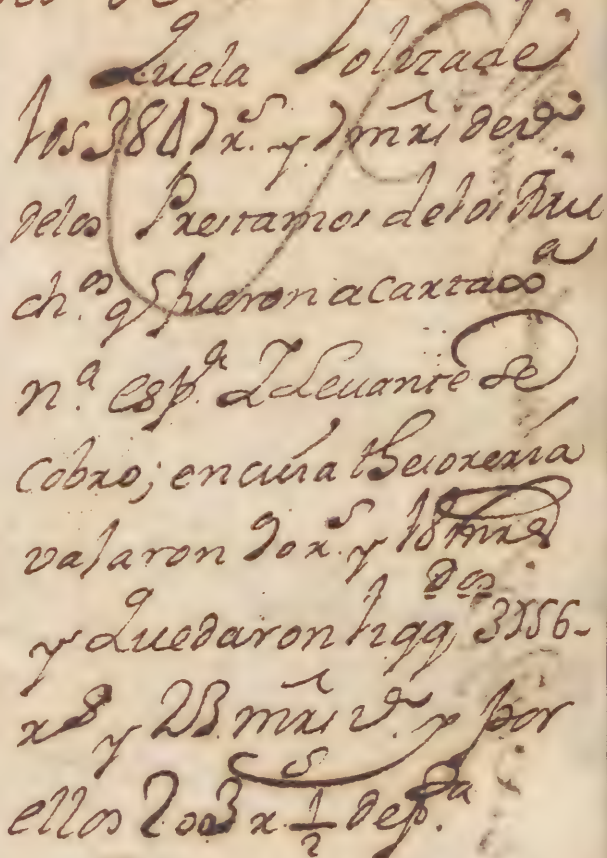 Que la Poliza de
los 3847 r.^s y 7 mrs de v.^n
delos Prestamos delos Mu
ch.^os q^e fueron a
n.^a esp.^a Levante se
Cobro; en cuia thesoreria
vajaron 90 r.^s y 18 mrs
y Quedaron liqq^dos 3756-
r^s y 23 mrs v.^n y por
ellos 2003 r^s 1/2 de p.^ta